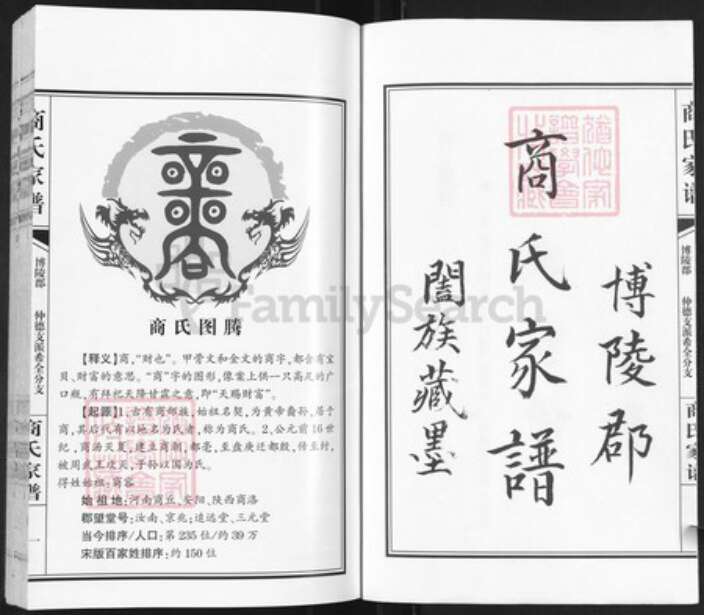 博陵郡
商氏家譜
闔族藏墨
商氏家谱
博陵郡 仲德支派希全分支
商氏家谱
一
商氏图腾
【释义】商,“财也”。甲骨文和金文的商字,都含有宝
贝、财富的意思。“商”字的图形,像案上供一只高足的广
口瓶,有拜祀天降甘露之意,即“天赐财富”。
【起源】1.古有商部族,始祖名契,为黄帝裔孙,居于
商,其后代有以地名为氏者,称为商氏。2.公元前16世
纪,商汤灭夏,建立商朝,都亳,至盘庚迁都殷,传至纣,
被周武王攻灭,子孙以国为氏。
得姓始祖:商容
始祖地:河南商丘、安阳、陕西商洛
郡望堂号:汝南、京兆;道远堂、三元堂
当今排序/人口:第235位/约39万
宋版百家姓排序:约150位
FamilySearch